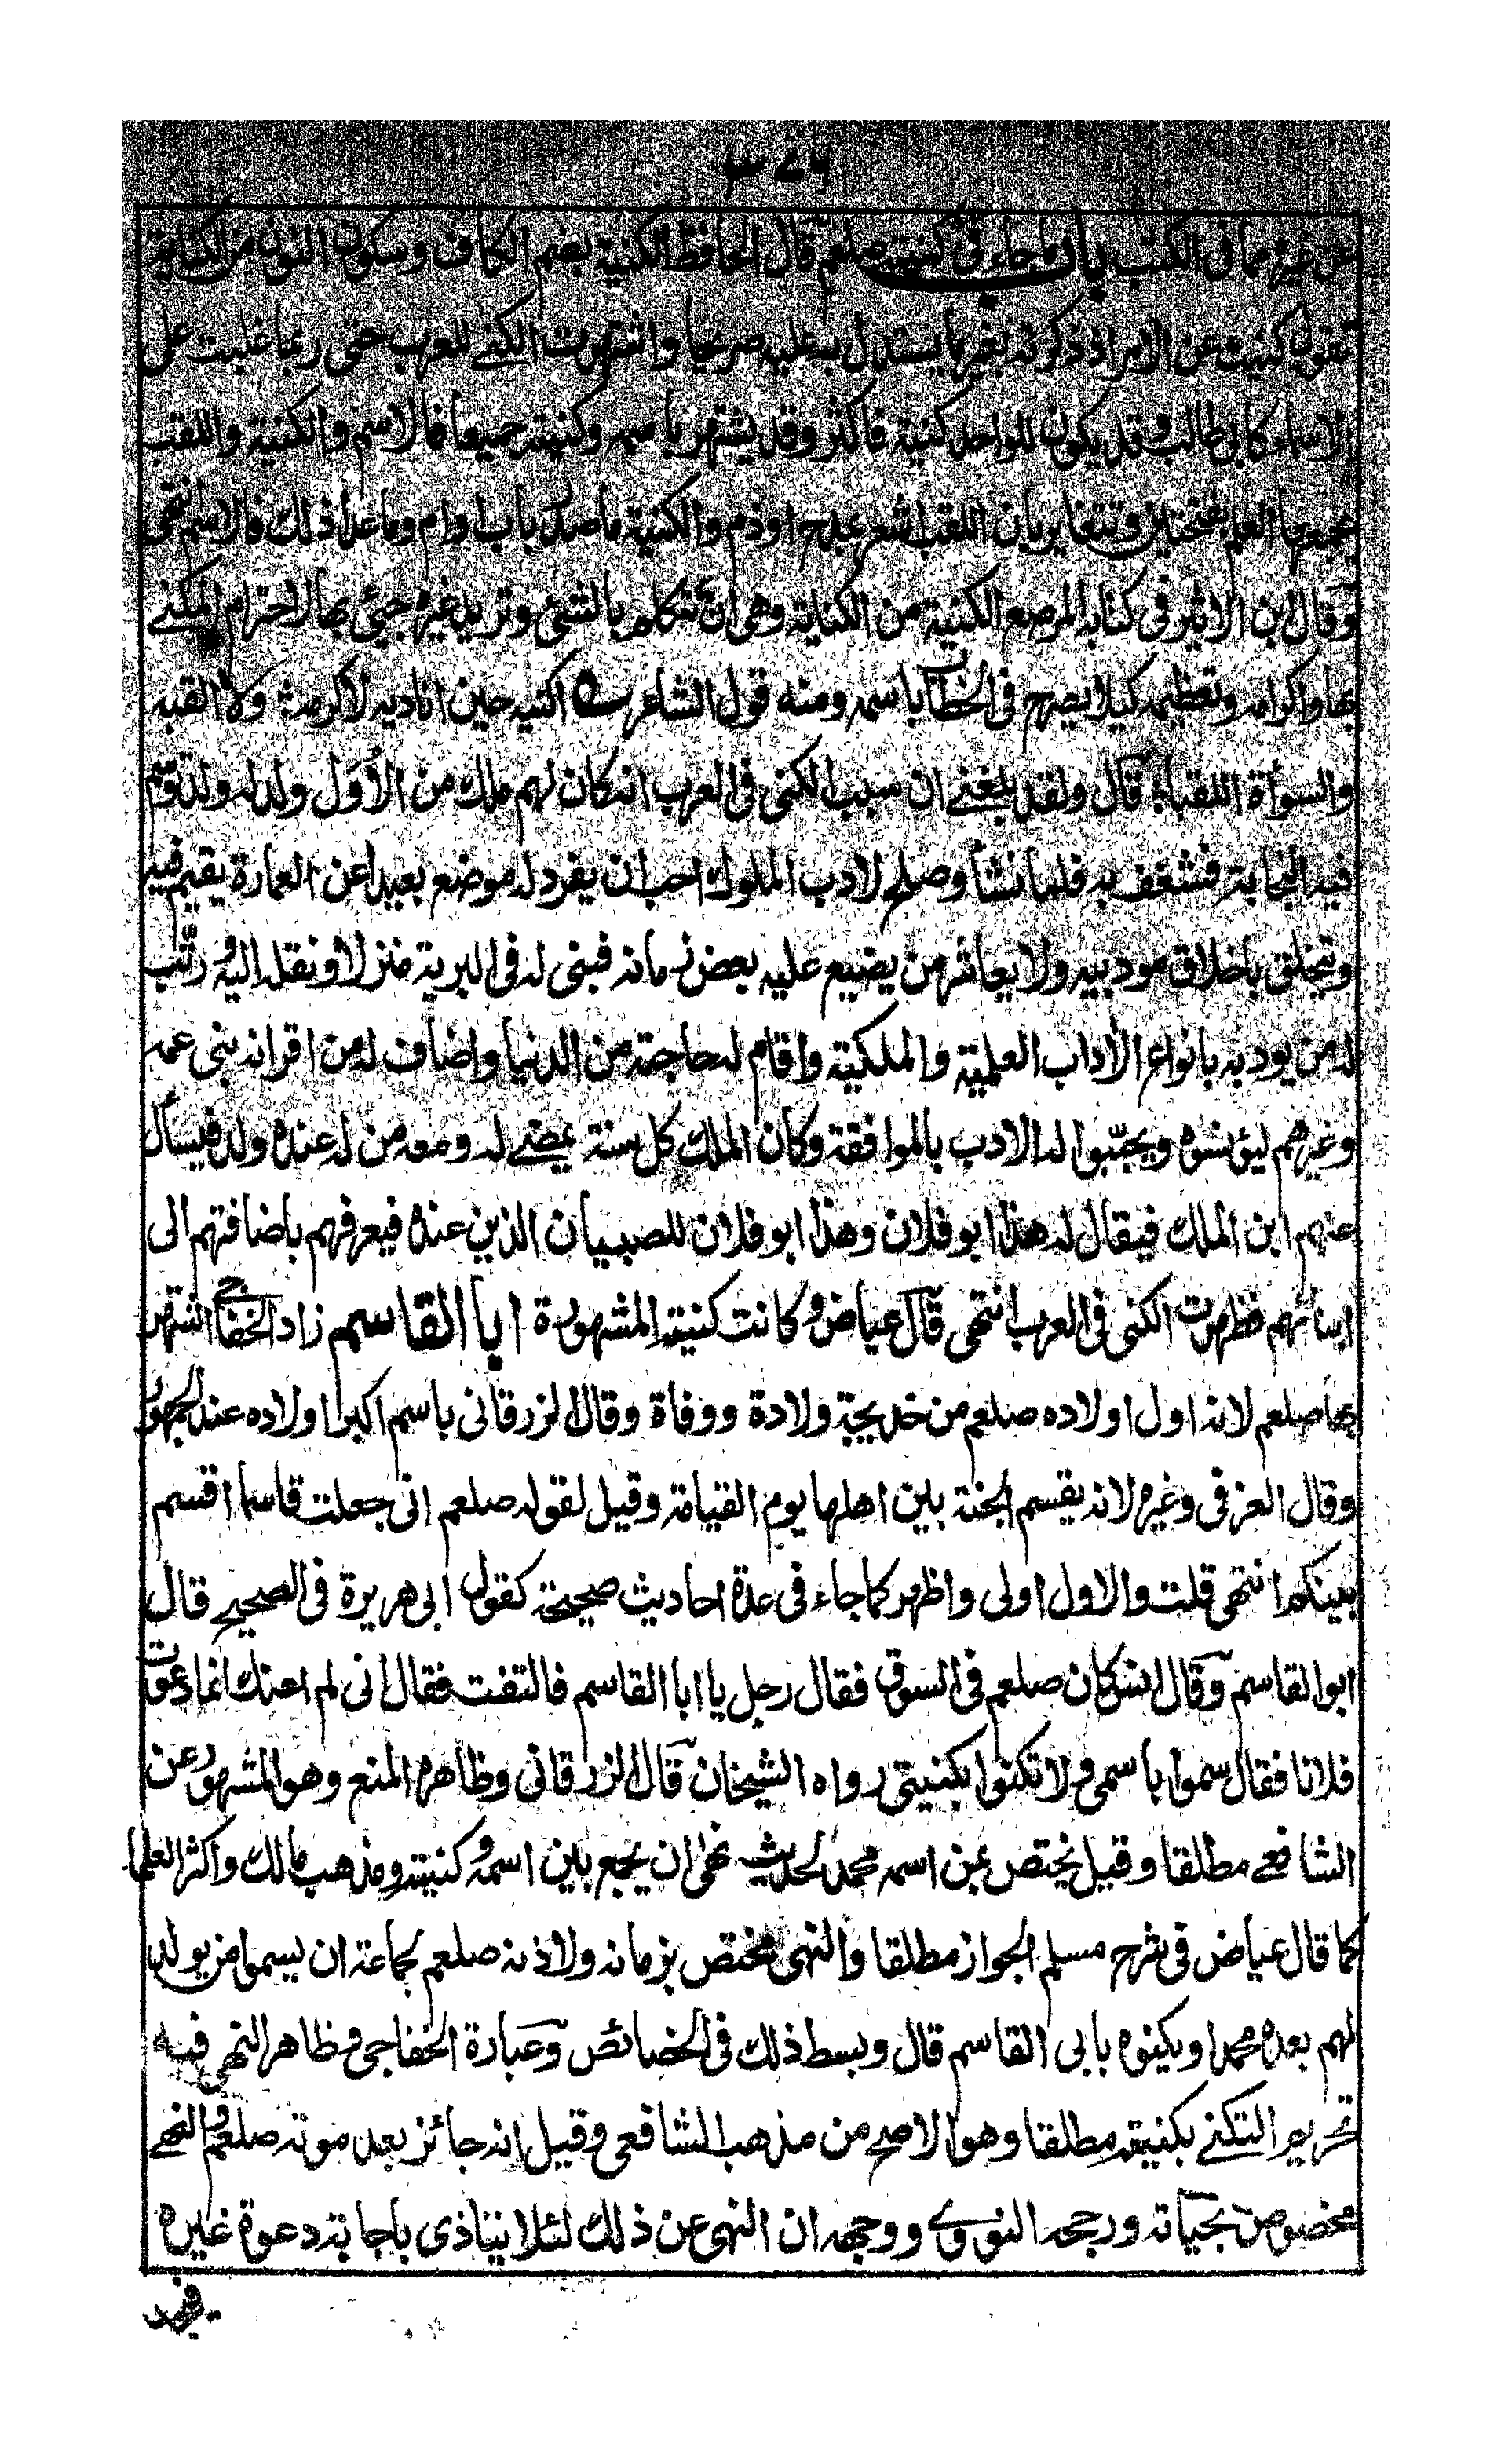 ٣٧٦
عن غيرهما فى الكتب باب ماجاء فى كنيته صلعم قال الحافظ الكنية بضم الكاف وسكون النون من الكناية
تقول كنيت عن الامر اذ ذكرته بغير ما يستدل به عليه صريحا واشتهرت الكنى للعرب حتى ربما غلبت على
الاسماء كابى طالب وقد يكون للواحد كنية فاكثر وقد يشتهر باسمه وكنيته جميعا فالاسم والكنية واللقب
يجمعها العلم بفتحتين وتتغاير بان اللقب اشعر بمدح او ذم والكنية ما صدر باب او ام وما عدا ذلك فالاسم انتهى
وقال ابن الاثير فى كتابه المرصع الكنية من الكناية وهى ان تتكلم بالشئ وتريد غيره جيئ بها لاحترام المكنے
بها واكرامه وتعظيمه كيلا يصرح فى الخطاب باسمه ومنه قول الشاعر اكنيه حين اناديه لاكرمه ولا القبه
والسوأة اللقبا قال ولقد بلغنے ان سبب الكنى فى العرب انه كان لهم ملك من الأول ولد له ولد توسم
فيه النجابة فشغف به فلما نشأ وصلح لادب الملوك احب ان يفرد له موضع بعيدا عن العمارة يقيم فيه
ويتخلق باخلاق مودبيه ولا يعاشر من يضيع عليه بعض زمانه فبنى له فى البرية منزلا ونقله اليه ورتب
له من يودبه بانواع الأداب العلمية والملكية واقام له حاجته من الدنيا واضاف له من اقرانه بنى عمه
وغيرهم ليؤنسوه ويحببوا له الادب بالموافقة وكان الملك كل سنة يمضے له ومعه من له عنده ولد فيسأل
عنهم ابن الملك فيقال له هذا ابو فلان وهذا ابو فلان للصبيان الذين عنده فيعرفهم باضافتهم الى
ابنائهم فظهرت الكنى فى العرب انتهى قال عياض وكانت كنيته المشهورة ابا القاسم زاد الخفاجى اشتهر
بها صلعم لانه اول اولاده صلعم من خديجة ولادة ووفاة وقال الزرقانى باسم اكبر اولاده عند الجمهور
وقال العزفى وغيره لانه يقسم الجنة بين اهلها يوم القيامة وقيل لقوله صلعم انى جعلت قاسما اقسم
بينكم انتهى قلت والاول اولى واظهر كما جاء فى عدة احاديث صحيحة كقول ابى هريرة فى الصحيح قال
ابو القاسم وقال انس كان صلعم فى السوق فقال رجل يا ابا القاسم فالتفت فقال انى لم اعنك انما دعوت
فلانا فقال سموا باسمى ولا تكنوا بكنيتى رواه الشيخان قال الزرقانى وظاهره المنع وهو المشهور عن
الشافعے مطلقا وقيل يختص بمن اسمه محمد لحديث نهى ان يجمع بين اسمه وكنيته ومذهب مالك واكثر العلما
كما قال عياض فى شرح مسلم الجواز مطلقا والنهى مختص بزمانه ولاذنه صلعم لجماعة ان يسموا من يولد
لهم بعده محمدا ويكنوه بابى القاسم قال وبسط ذلك فى الخصائص وعبارة الخفاجى وظاهر النهى فيه
تحريم التكنے بكنيته مطلقا وهو الاصح من مذهب الشافعى وقيل انه جائز بعد موته صلعم والنهے
مخصوص بحياته ورجحه النووے ووجهه ان النهى عن ذلك لئلا يتاذى باجابته دعوة غيره